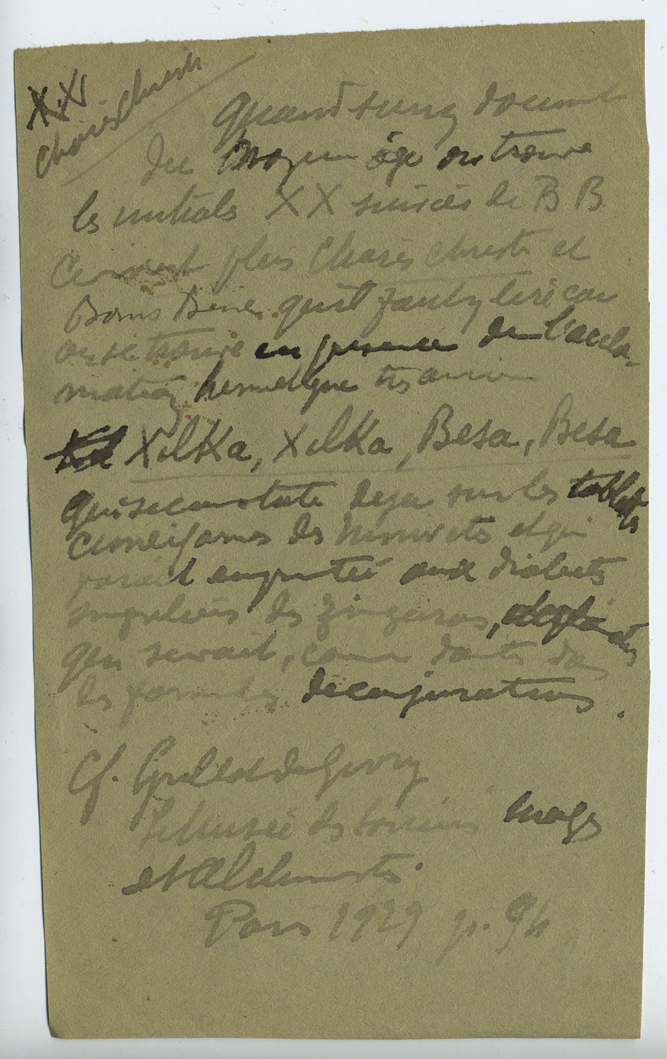 XX
Charis Christi
Quand sur un document
du Moyen âge on trouve
les initiales XX suivies de BB
ce n'est plus Charis Christi et
Bonis Bene qu'il faut y lire car
on se trouve en présence de l'accla-
mation hermétique très ancienne
Xilka, Xilka, Besa, Besa
qui se constate déjà sur les tablettes
cunéiformes de et qui
parait empruntée aux dialectes
singuliers des Zingaras,
qui serait, comme dans
les formules de conjurations.
Cf. Grillot de Givry
Le Musée des Sorciers Mages
et Alchimistes.
Paris 1929 p. 94